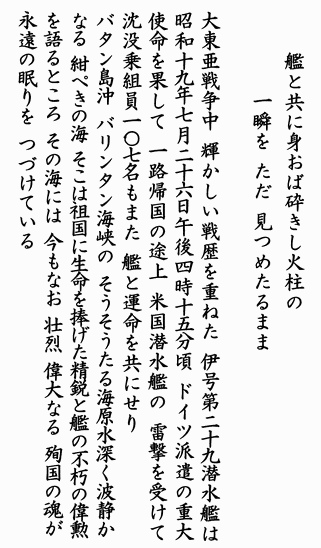 艦と共に身おば砕きし火柱の
一瞬を ただ 見つめたるまま
大東亜戦争中 輝かしい戦歴を重ねた 伊号第二十九潜水艦は
昭和十九年七月二十六日午後四時十五分頃 ドイツ派遣の重大
使命を果して 一路帰国の途上 米国潜水艦の 雷撃を受けて
沈没乗組員一〇七名もまた 艦と運命を共にせり
バタン島沖 バリンタン海峡の そうそうたる海原水深く波静か
なる 紺ぺきの海 そこは祖国に生命を捧げた精鋭と艦の不朽の偉勲
を語るところ その海には 今もなお 壮烈 偉大なる 殉国の魂が
永遠の眠りを つづけている